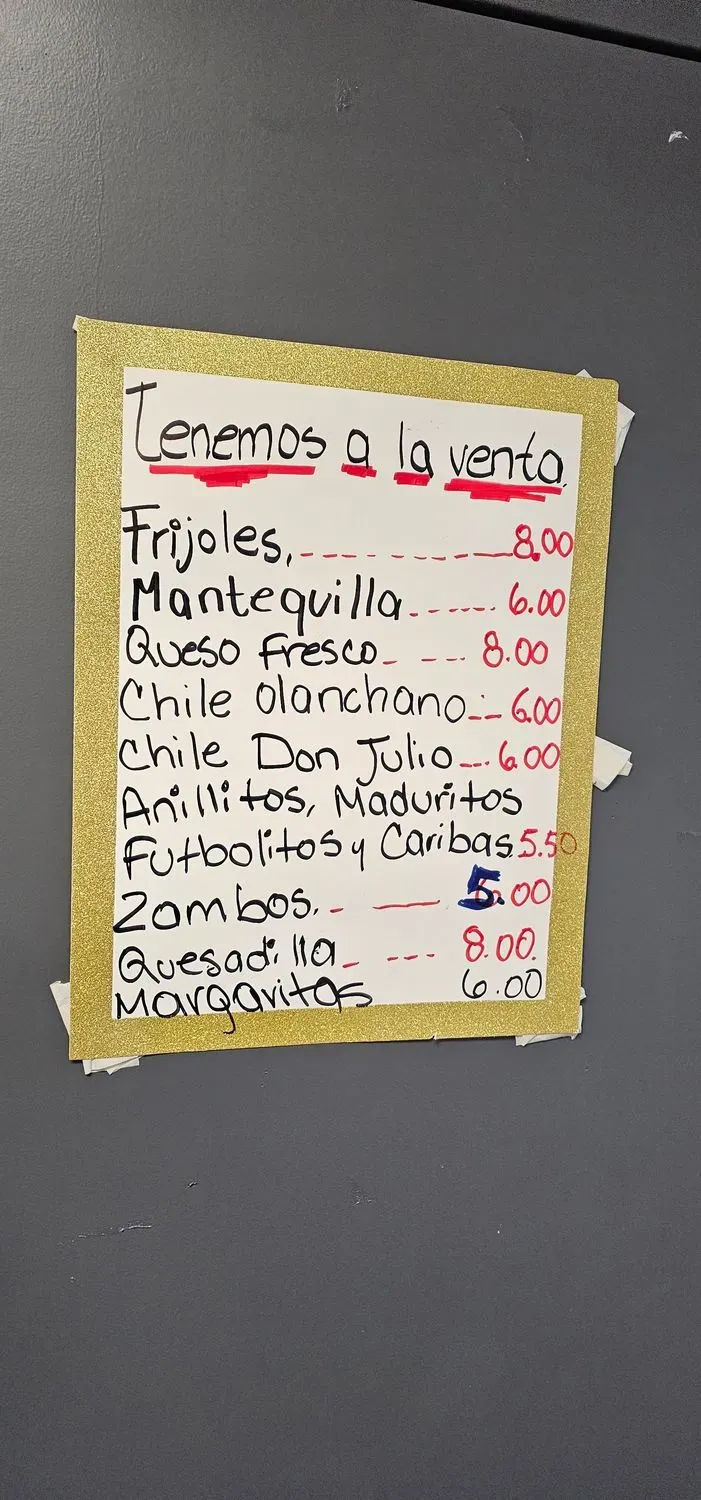 Tenemos a la venta.
Frijoles, 8.00
Mantequilla 6.00
Queso Fresco 8.00
Chile Olanchano 6.00
Chile Don Julio 6.00
Anillitos, Maduritos
Futbolitos y Caribas 5.50
Zambos. 5.00
Quesadilla 8.00.
Margaritas 6.00